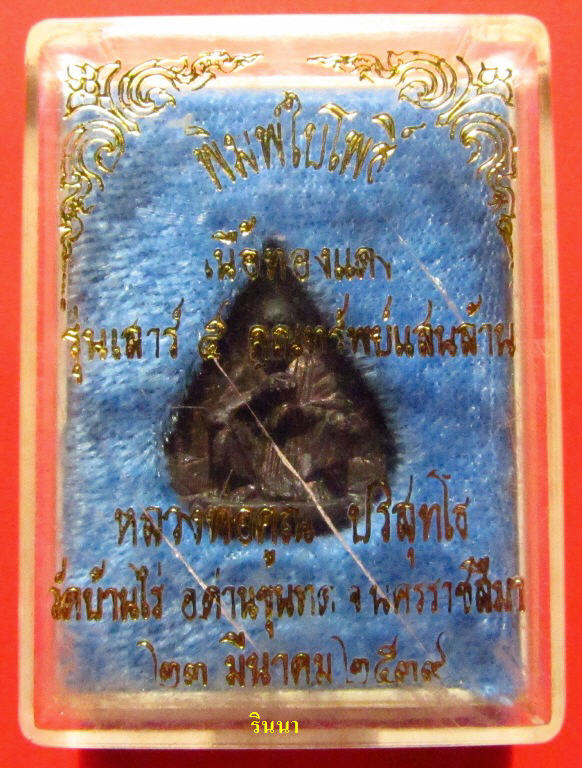 พิมพ์ใบโพธิ์
เนื้อทองแดง
รุ่นเสาร์ ๕ คูณทรัพย์แสนล้าน
หลวงพ่อคูณ ปริสุทโธ
วัดบ้านไร่ อ.ด่านขุนทด จ.นครราชสีมา
๒๓ มีนาคม ๒๕๓๙
รินนา